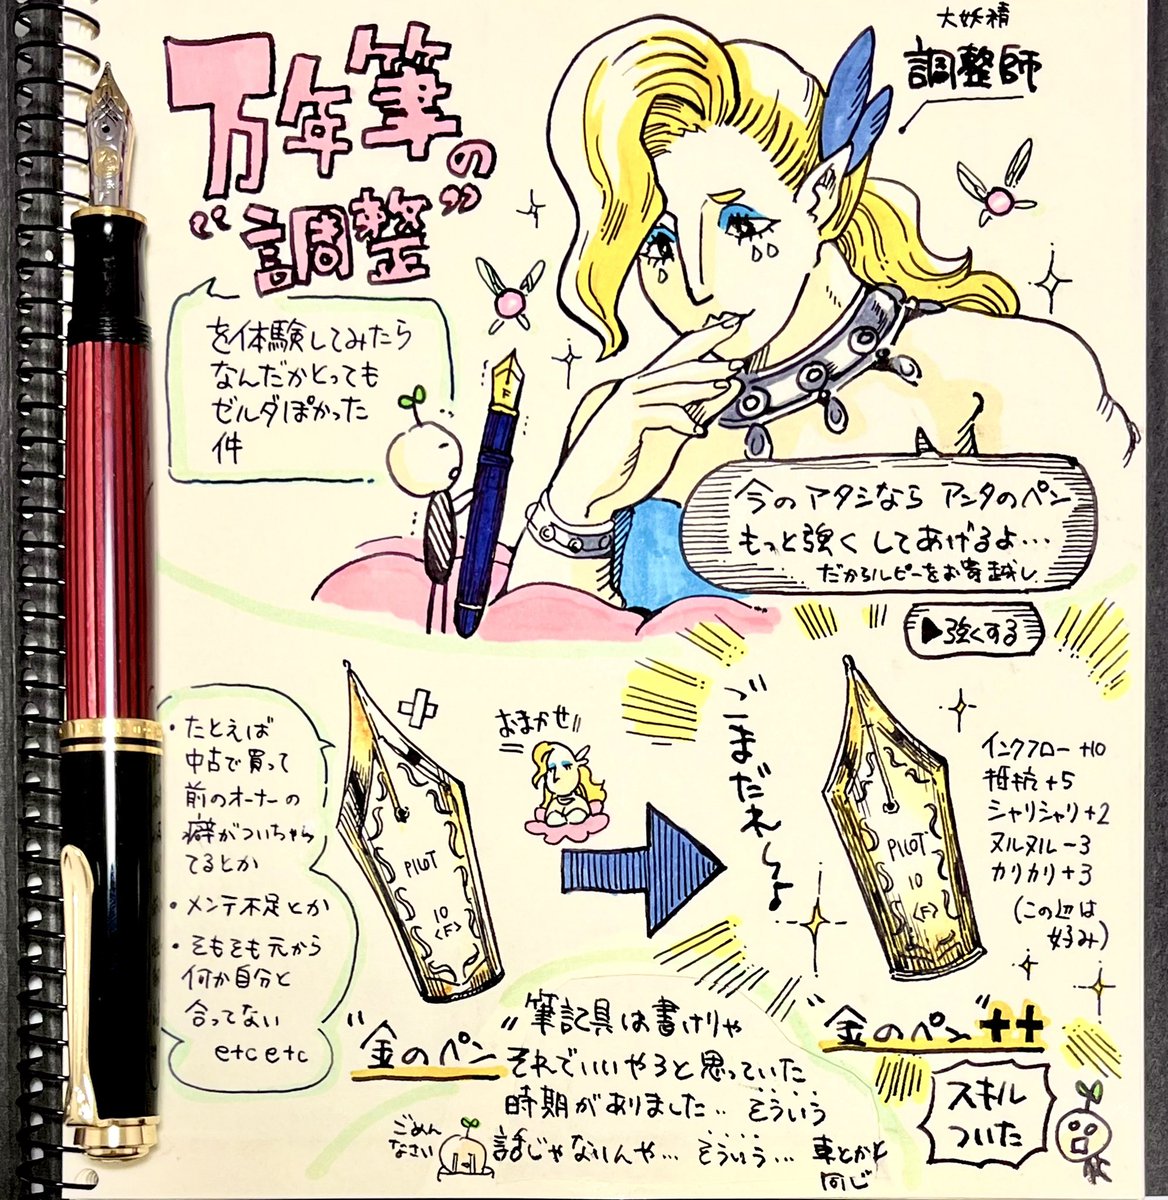 万年筆の
“調整”
を体験してみたら
なんだかとっても
ゼルダぽかった
件
大妖精
調整師
F
今のアタシなら アンタのペン
もっと強くしてあげるよ…
だからルピーをお寄越し
▶強くする
・たとえば
中古で買って
前のオーナーの
癖がついちゃっ
てるとか
・メンテ不足とか
・そもそも元から
何か自分と
合ってない
etc etc
PILOT
10
<F>
“金のペン”
おまかせ!!
ごまだれ〜♪
PILOT
10
<F>
インクフロー+10
抵抗+5
シャリシャリ+2
ヌルヌル-3
カリカリ+3
(この辺は
好み)
“金のペン”++
スキル
ついた
筆記具は書けりゃ
それでいいやろと思っていた
時期がありました‥ そういう
話じゃないんや… そういう… 車とかと
同じ
ごめん
なさい